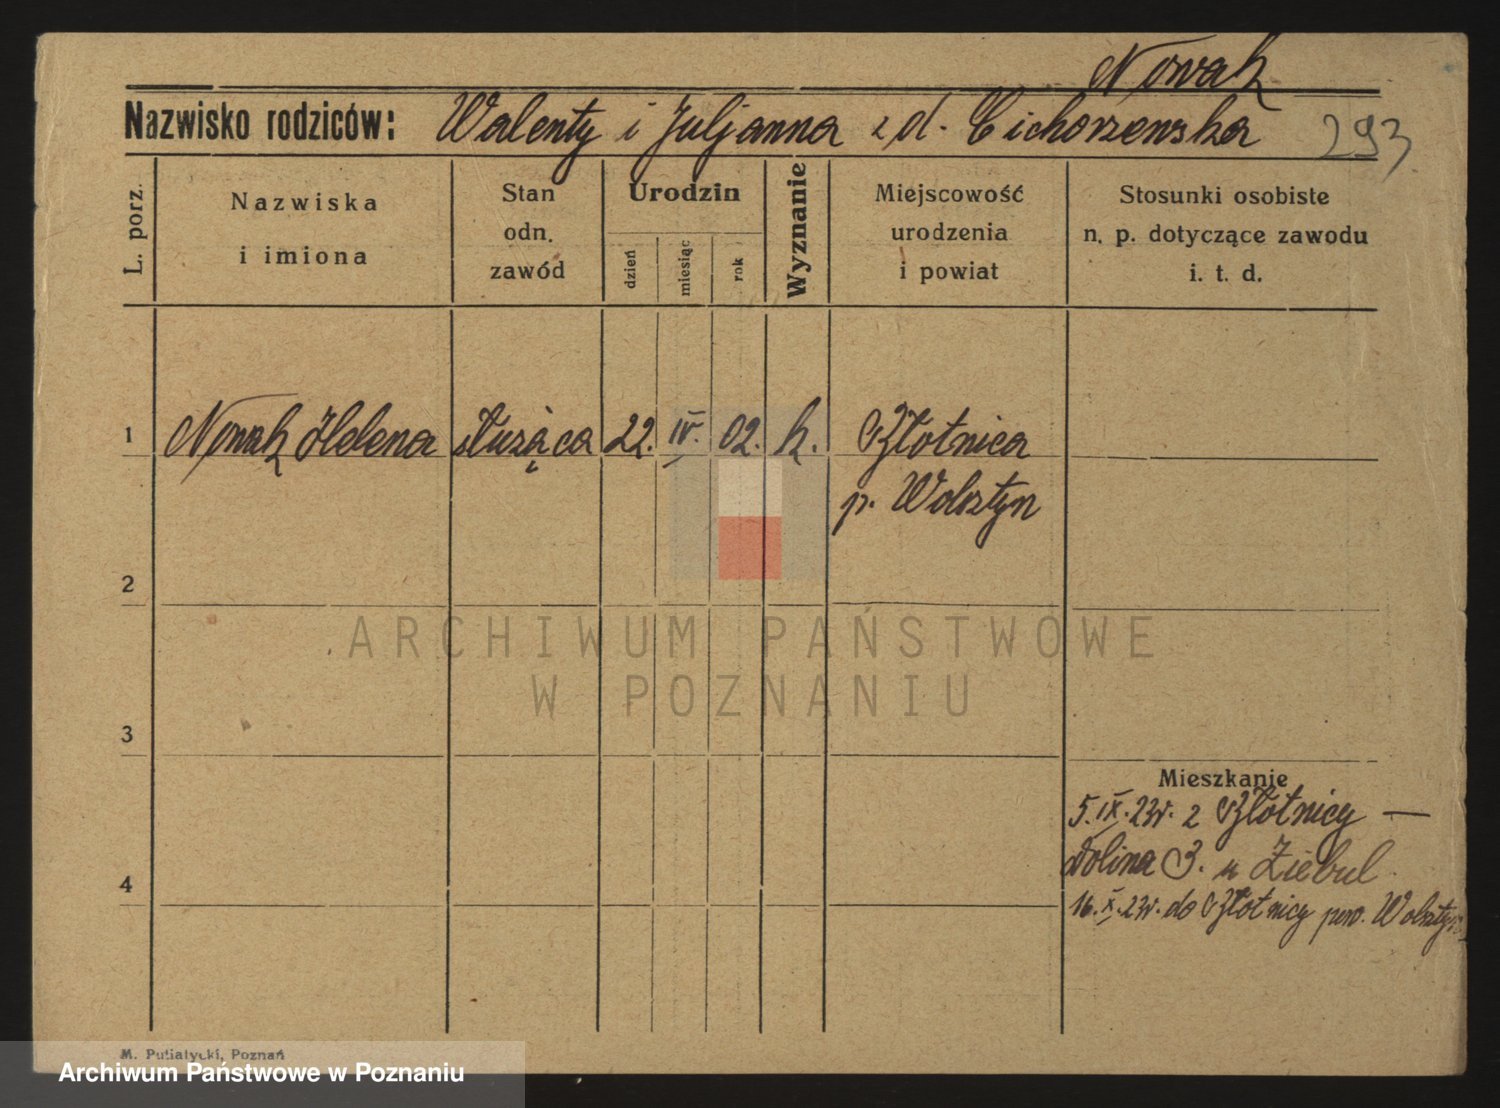 Nowak
Nazwisko rodziców: Walenty i Juljanna z d. Cichorzewska 293
L. porz.
Nazwiska
i imiona
Stan
odn.
zawód
Urodzin
dzień
miesiąc
rok
Wyznanie
Miejscowość
urodzenia
i powiat
Stosunki osobiste
n. p. dotyczące zawodu
i. t. d.
1 Nowak Helena służąca 22. IV. 02. k. Błotnica
p. Wolsztyn
2
ARCHIWUM PAŃSTWOWE
W POZNANIU
3
Mieszkanie
5.IX.23r. z Błotnicy —
Dolina 3. u Ziebul.
4
16.X.23r. do Błotnicy pow. Wolsztyn
M. Putiatycki, Poznań
Archiwum Państwowe w Poznaniu